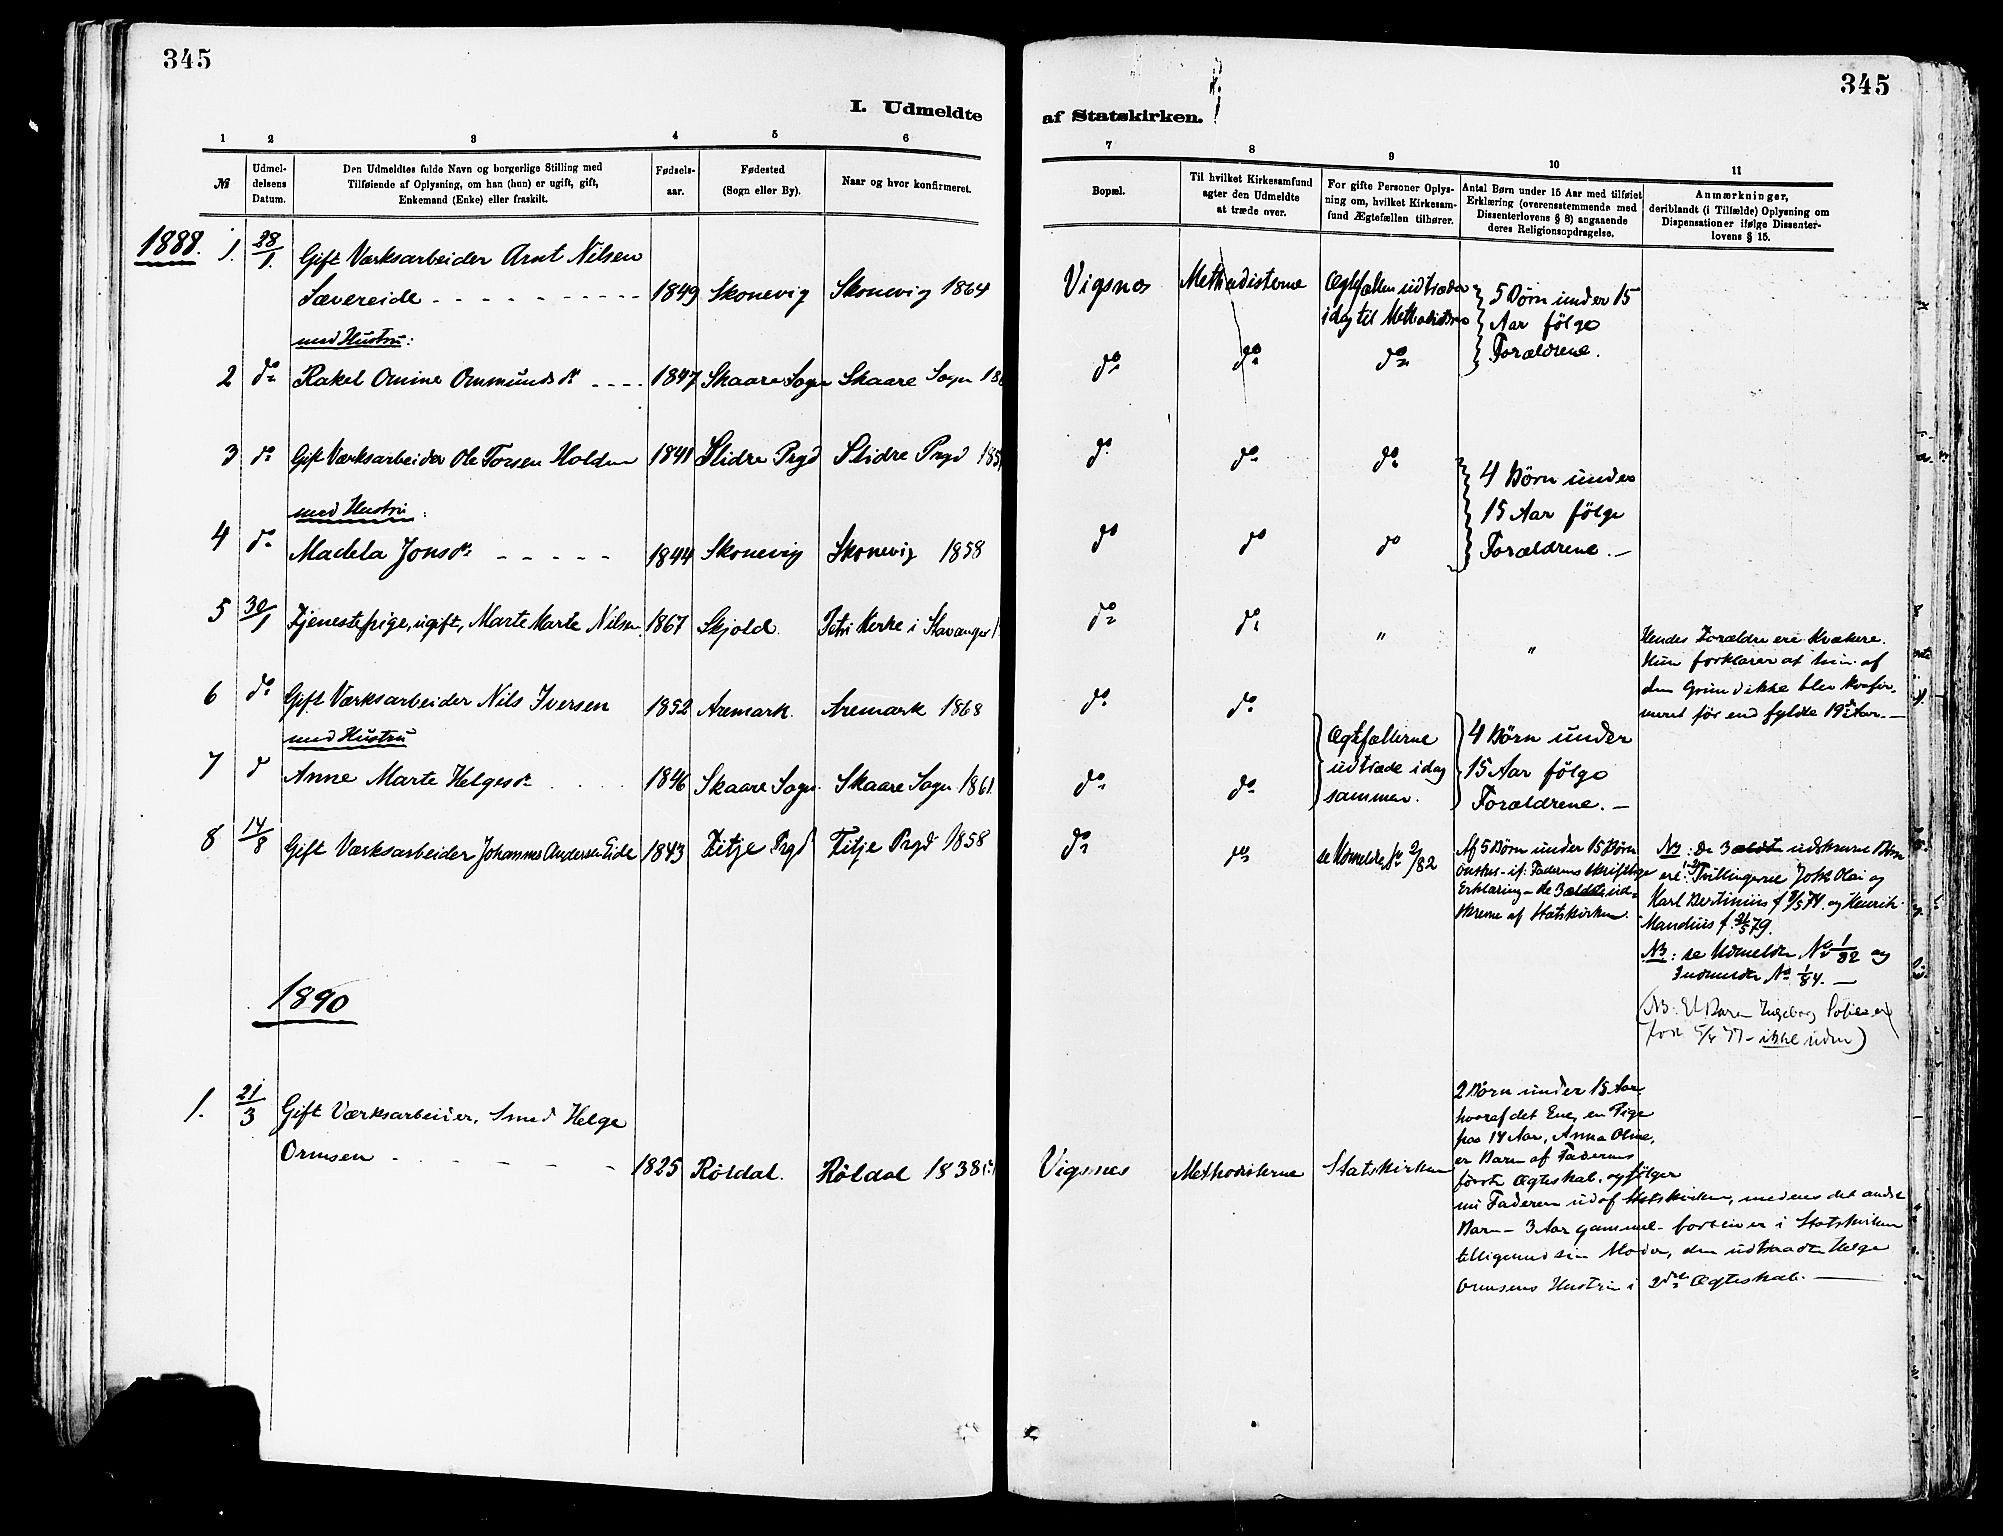 345
345
I. Udmeldte
af Statskirken.
1 2 3 4 5 6
7 8 9 10 11
№
Udmel-
delsens
Datum.
Den Udmeldtes fulde Navn og borgerlige Stilling med
Tilføiende af Oplysning, om han (hun) er ugift, gift,
Enkemand (Enke) eller fraskilt.
Fødsels-
aar.
Fødested
(Sogn eller By).
Naar og hvor konfirmeret.
Bopæl.
Til hvilket Kirkesamfund
agter den Udmeldte
at træde over.
For gifte Personer Oplys-
ning om, hvilket Kirkesam-
fund Ægtefællen tilhører.
Antal Børn under 15 Aar med tilføiet
Erklæring (overensstemmende med
Dissenterlovens § 8) angaaende
deres Religionsopdragelse.
Anmærkninger,
deriblandt (i Tilfælde) Oplysning om
Dispensationer ifølge Dissenter-
lovens § 15.
1888.
1. 28/1. Gift Værksarbeider Arnt Nilsen
Sævereide 1849 Skonevig Skonevig 1864
Vigsnes Methodisterne Ægtefællen udtræder
idag til Methodisterne
5 Børn under 15
Aar følge
Forældrene.
med Hustru:
2 do Rakel Omine Ommundsdr 1847 Skaare Sogn Skaare Sogn
do do do
3 do Gift Værksarbeider Ole Torsen Holden 1841 Slidre Prgd Slidre Prgd
do do do
4 Børn under
15 Aar følge
Forældrene. —
med Hustru:
4 do Madela Jonsdr 1844 Skonevig Skonevig 1858
do do do
5 30/1 Tjenestepige, ugift, Marte Marte Nilsen 1867 Skjold. Petri Kirke i Stavanger
do do " "
Hendes Forældre ere Kvækere.
Hun forklarer at hun af
den Grund ikke blev konfir-
meret før end fyldte 19 Aar. —
6 do Gift Værksarbeider Nils Iversen 1852 Aremark. Aremark 1868
do do
med Hustru
7 d Anne Marte Helgesdr 1846 Skaare Sogn. Skaare Sogn 1861.
do do
Ægtefællerne
udtræde idag
sammen.
4 Børn under
15 Aar følge
Forældrene. —
8 14/8 Gift Værksarbeider Johannes Andersen Eide 1843 Fitje Prgd Fitje Prgd 1858
do do se Udmeldte, No 2/82
Af 5 Børn under 15
Faderens skriftlige
Erklæring – de 3 ældste ud-
skrevne af Statskirken.
NB: De 3 ældste udskrevne Børn
ere: Tvillingerne Joh. Olai og
Karl Bertinius f. 74. og Henrik
Mandius f. 79.
NB: se Udmeldte No 1/82 og
Indmeldte No 1/84. —
(NB: Et Barn Ingeborg
født – ikke uden)
1890
1. 21/3 Gift Værksarbeider, Smed Helge
Ormsen 1825 Röldal. Röldal 1838
Vigsnes Methodisterne Statskirken
2 Børn under 15 Aar
hvoraf det Ene, en Pige
paa 14 Aar, Anna Oline,
er Barn af Faderens
første Ægteskab, og følger
nu Faderen ud af Statskirken, medens det andet
Barn – 3 Aar gammel – forbliver i Statskirken
tilligemed sin Moder, den udtraadte Helge
Ormsens Hustru i 2det Ægteskab. —